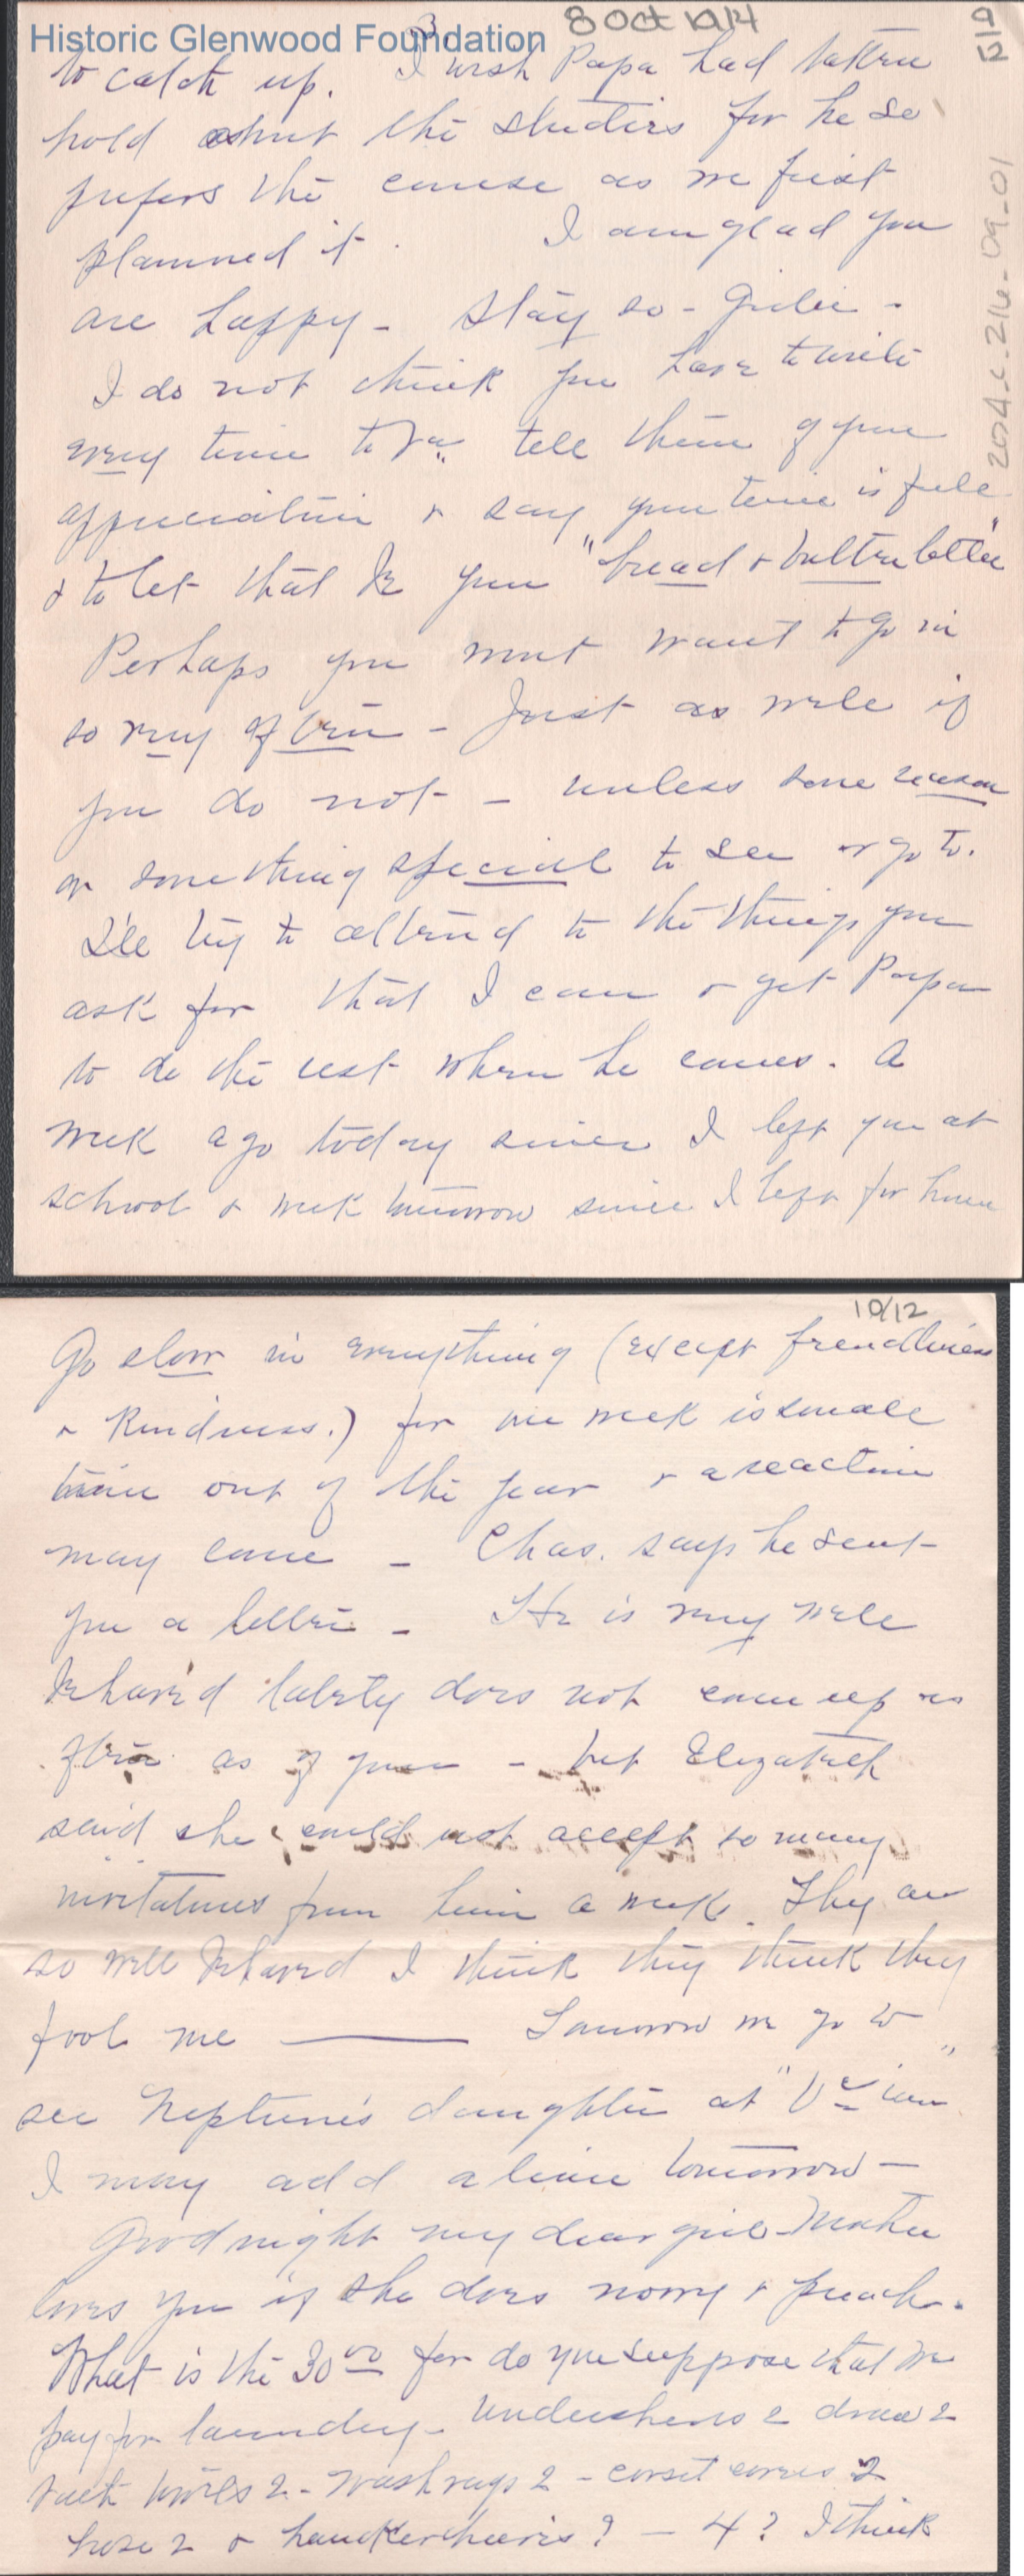 Historic Glenwood Foundation
8 Oct 1914
9/12
3.
to catch up. I wish Papa had taken
hold about the studies for he so
prefers the course as we first
planned it. I am glad you
are happy - stay so - Girlie -
I do not think you have to write
every time to Va. tell them of your
appreciation & say your time is full
& to let that be your "bread & butter letter"
Perhaps you wont want to go in
so very often - Just as well if
you do not - unless some reason
or something special to see or go to.
I'll try to attend to the things you
ask for that I can & get Papa
to do the rest when he comes. A
week ago today since I left you at
school & week tomorrow since I left for home
2014.c.216-09-01
10/12
Go slow in everything (except friendliness
& kindness.) for one week is small
time out of the year & a reaction
may come - Chas. says he sent
you a letter - He is very well
behav'd lately does not come up as
often as of your - but Elizabeth
said she could not accept so many
invitations from him a week. They are
so well behaved I think they think they
fool me — Tomorrow we go to
see Neptune's daughter at "
I may add a line tomorrow -
Good night my dear girl - Mother
loves you if she does worry & preach.
What is the 30 00 for do you suppose that we
pay for laundry - undershirts 2 draw 2
bath towels 2 - wash rags 2 - corset covers 2
hose 2 & hankercheivs? - 4? I think